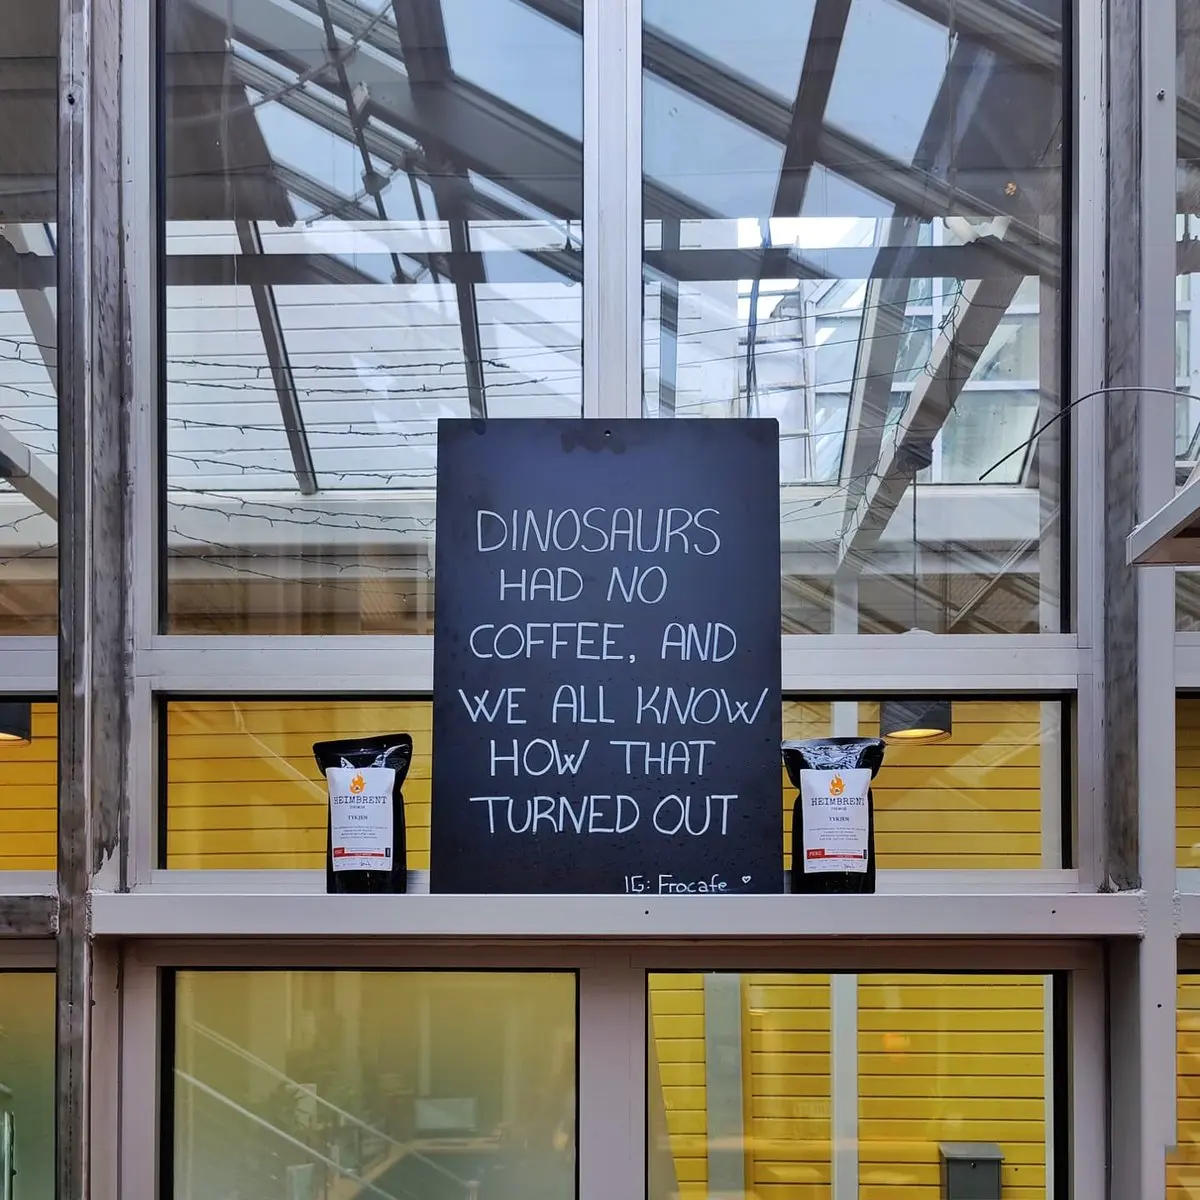 DINOSAURS
HAD NO
COFFEE, AND
WE ALL KNOW
HOW THAT
TURNED OUT
IG: Frocafe
HEIMBRENT
TYKJEN
HEIMBRENT
TYKJEN